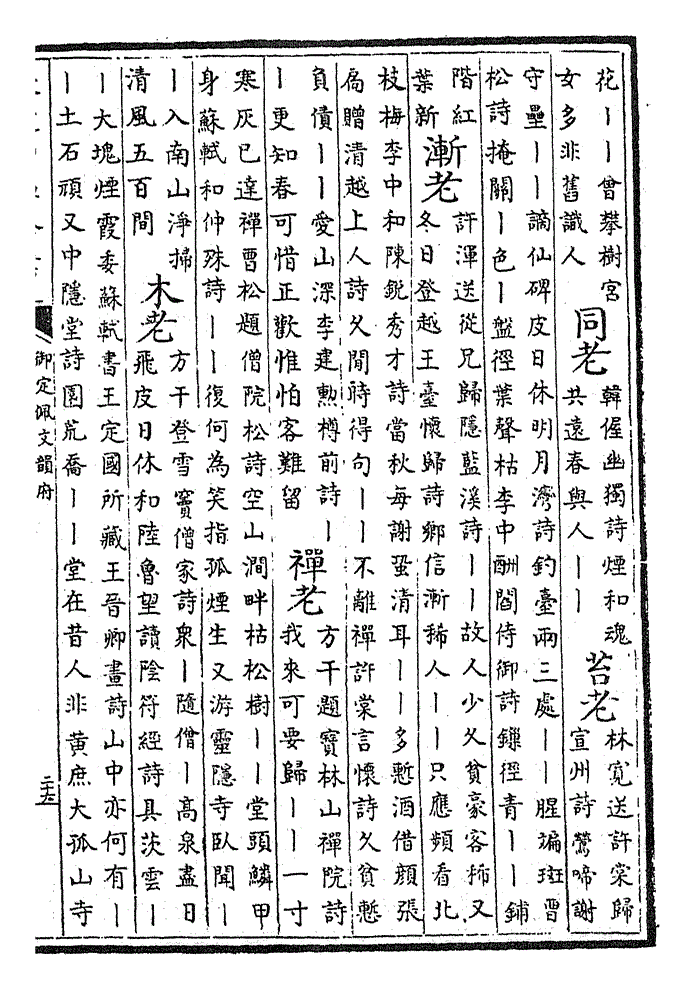 花丨丨曾攀樹宮
女多非舊識人
同老
韓偓幽獨詩煙和魂
共遠春與人丨丨
苔老
林寬送許棠歸
宣州詩鶯啼謝
守壘丨丨謫仙碑皮日休明月灣詩釣臺兩三處丨丨腥斒斑曹
松詩掩關丨色丨盤徑葉聲枯李中酬閻侍御詩鏁徑青丨丨鋪
階紅
葉新
漸老
許渾送從兄歸隱藍溪詩丨丨故人少久貧豪客稀又
冬日登越王臺懷歸詩鄉信漸稀人丨丨只應頻看北
枝梅李中和陳銳秀才詩當秋每謝蛩清耳丨丨多慙酒借顏張
喬贈清越上人詩久閒時得句丨丨不離禪許棠言懷詩久貧慙
負債丨丨愛山深李建勳樽前詩丨
丨更知春可惜正歡惟怕客難留
禪老
方干題寶林山禪院詩
我來可要歸丨丨一寸
寒灰已達禪曹松題僧院松詩空山澗畔枯松樹丨丨堂頭鱗甲
身蘇軾和仲殊詩丨丨復何為笑指孤煙生又游靈隱寺臥聞丨
丨入南山淨掃
清風五百間
木老
方干登雪竇僧家詩衆丨隨僧丨高泉盡日
飛皮日休和陸魯望讀陰符經詩具茨雲丨
丨大塊煙霞委蘇軾書王定國所藏王晉卿畫詩山中亦何有丨
丨土石頑又中隱堂詩園荒喬丨丨堂在昔人非黃庶大孤山寺
御定佩文韻府
二十六